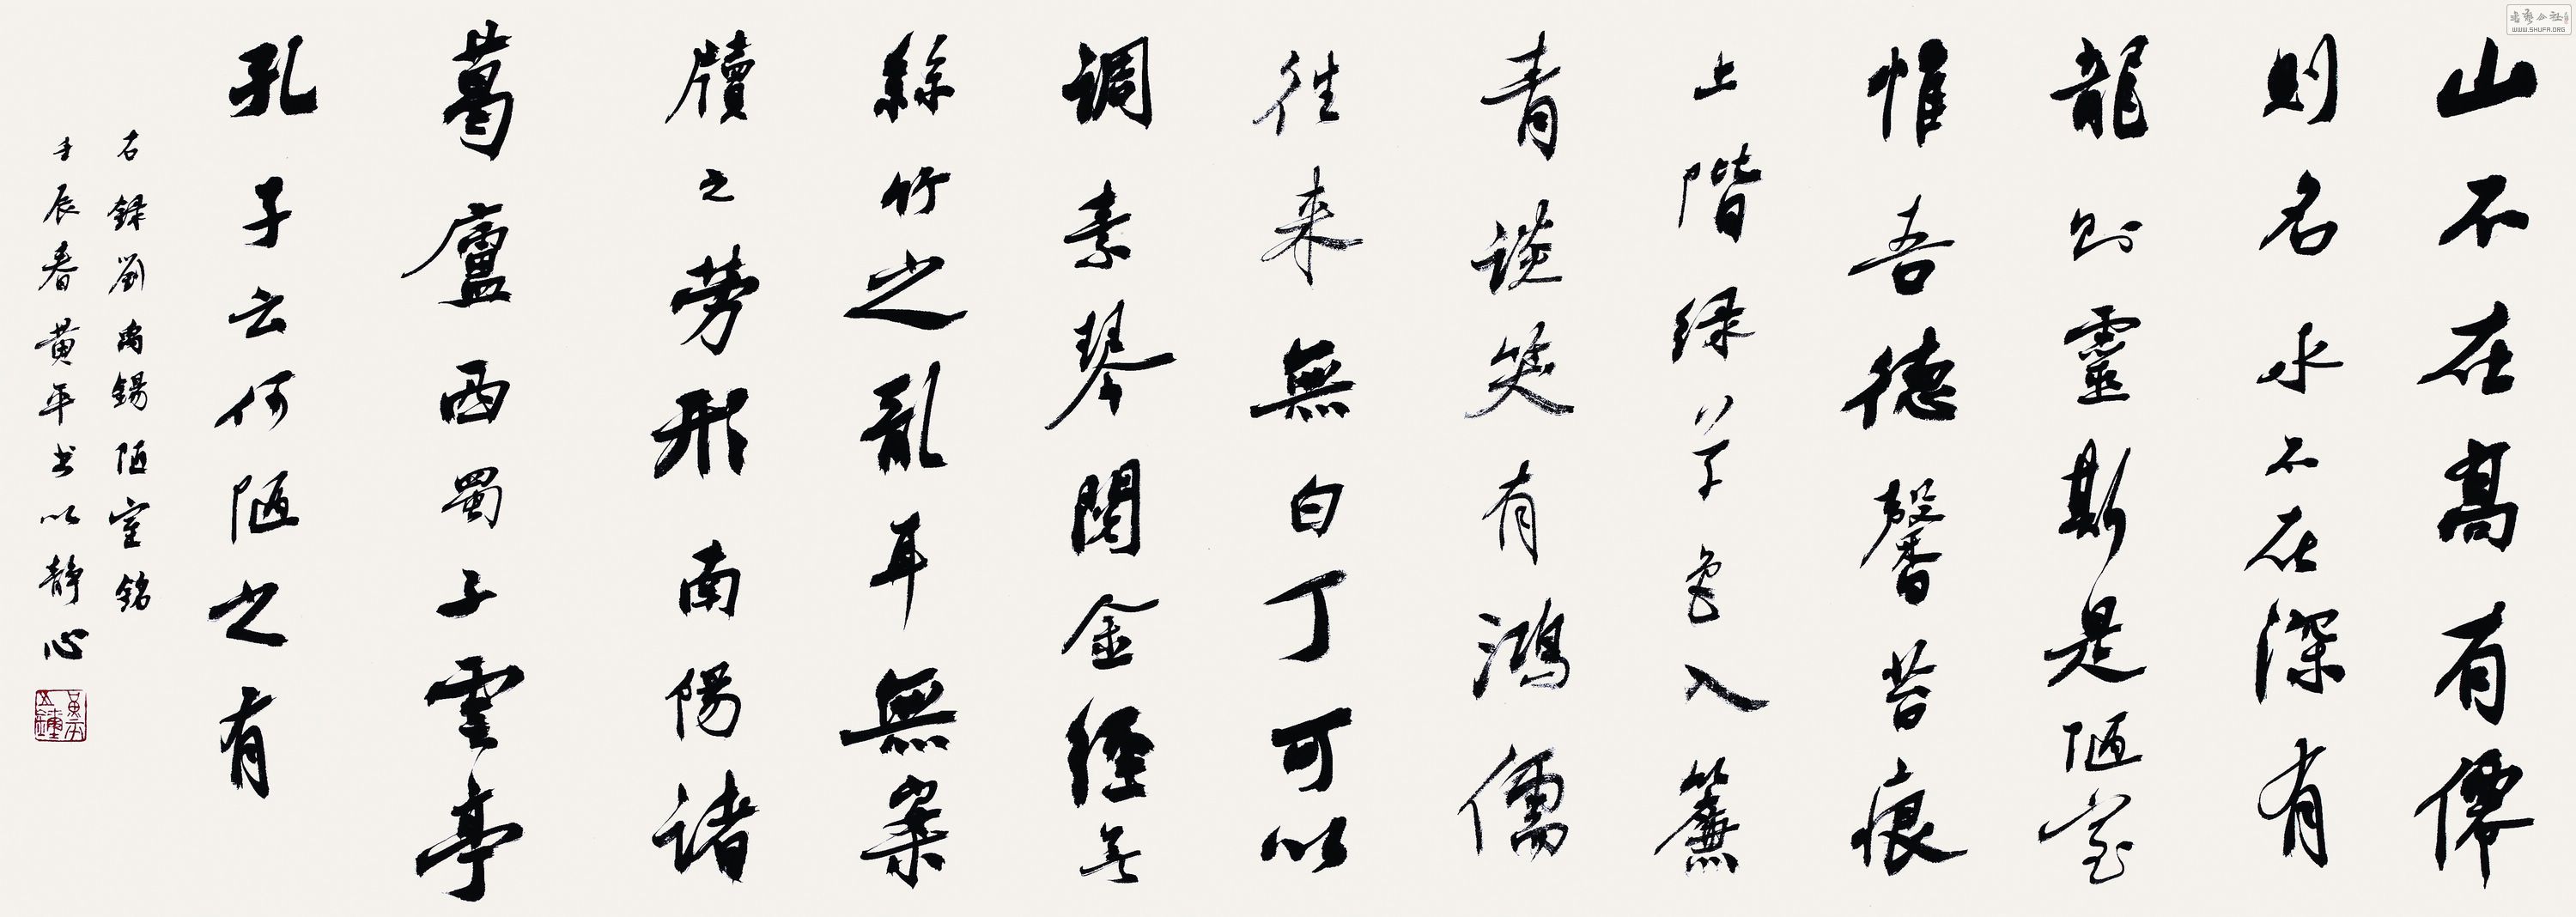 山不在高有僊
则名水不在深有
龍则靈斯是陋室
惟吾德馨苔痕
上階绿草色入簾
青談笑有鴻儒
往来無白丁可以
调素琴閲金經无
絲竹之乱耳無案
牘之劳形南陽诸
葛廬西蜀子雲亭
孔子云何陋之有
右録劉禹錫陋室銘
壬辰春黄平书以静心
WWW.SHUFA.ORG